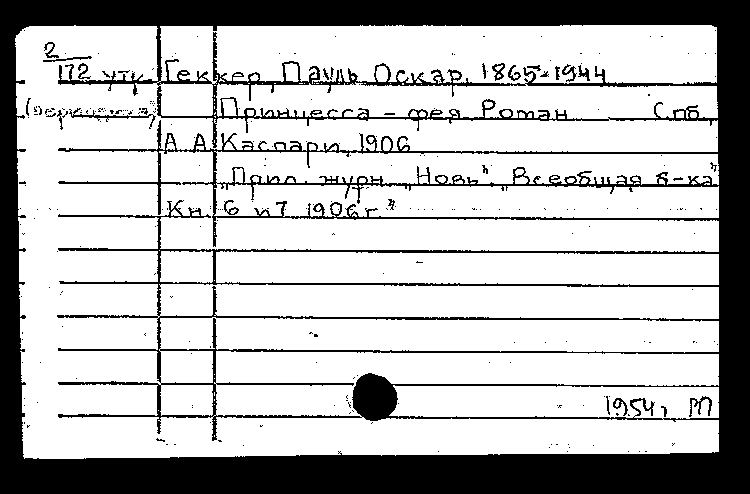 2
172 утк Геккер, Пауль Оскар, 1865-1944
Принцесса - фея Роман Спб,
А А Каспари, 1906
„Прил. журн. „Новь", „Всеобщая б-ка"
Кн. 6 и 7 1906 г."
1954, М